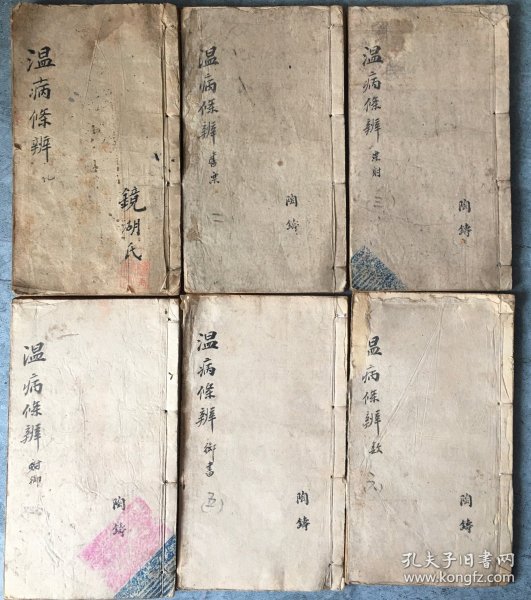 温病條辨 礼
鏡湖氏
温病條辨
二
陶鑄
温病條辨 樂射
三
陶鑄
温病條辨 射御
陶鑄
温病條辨 御書
(五)
陶鑄
温病條辨 数
(六)
陶鑄
孔夫子旧书网
www.kongfz.com